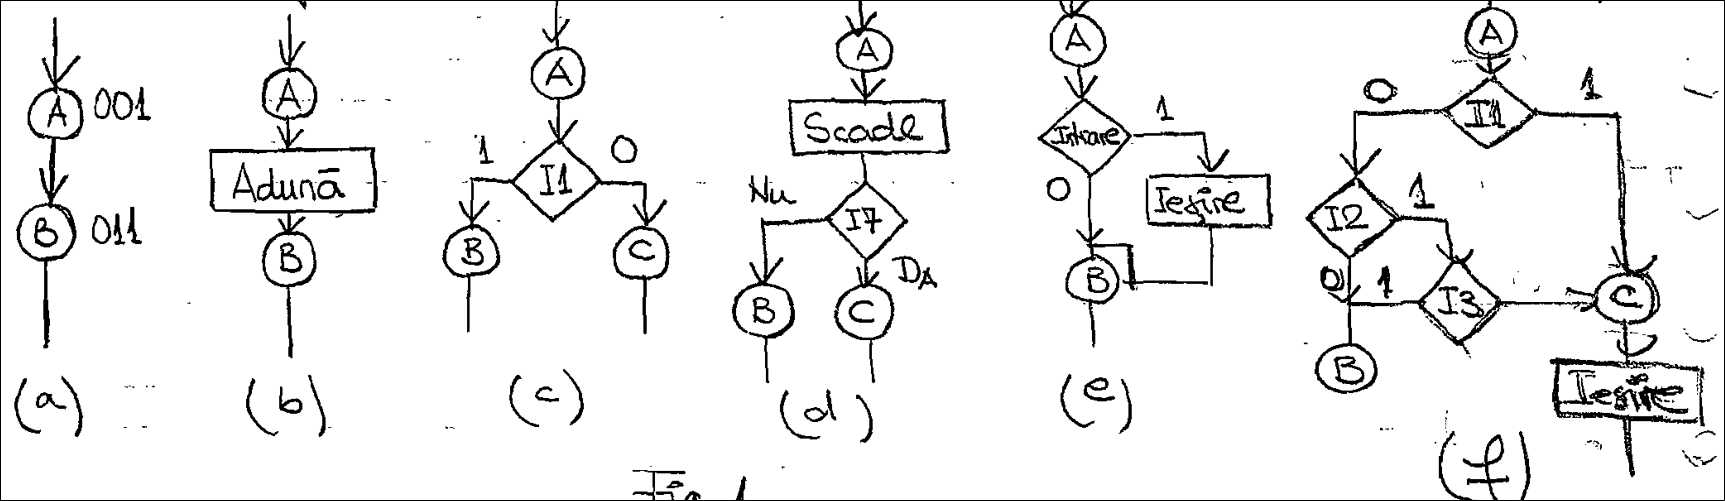 A 001
B 011
(a)
A
Adună
B
(b)
A
1 I1 0
B C
(c)
A
Scade
Nu I7
DA
B C
(d)
A
Intrare 1
0 Ieșire
B
(e)
A
0 I1 1
I2 1
0 1 I3 C
B
Ieșire
(f)
Fig 1